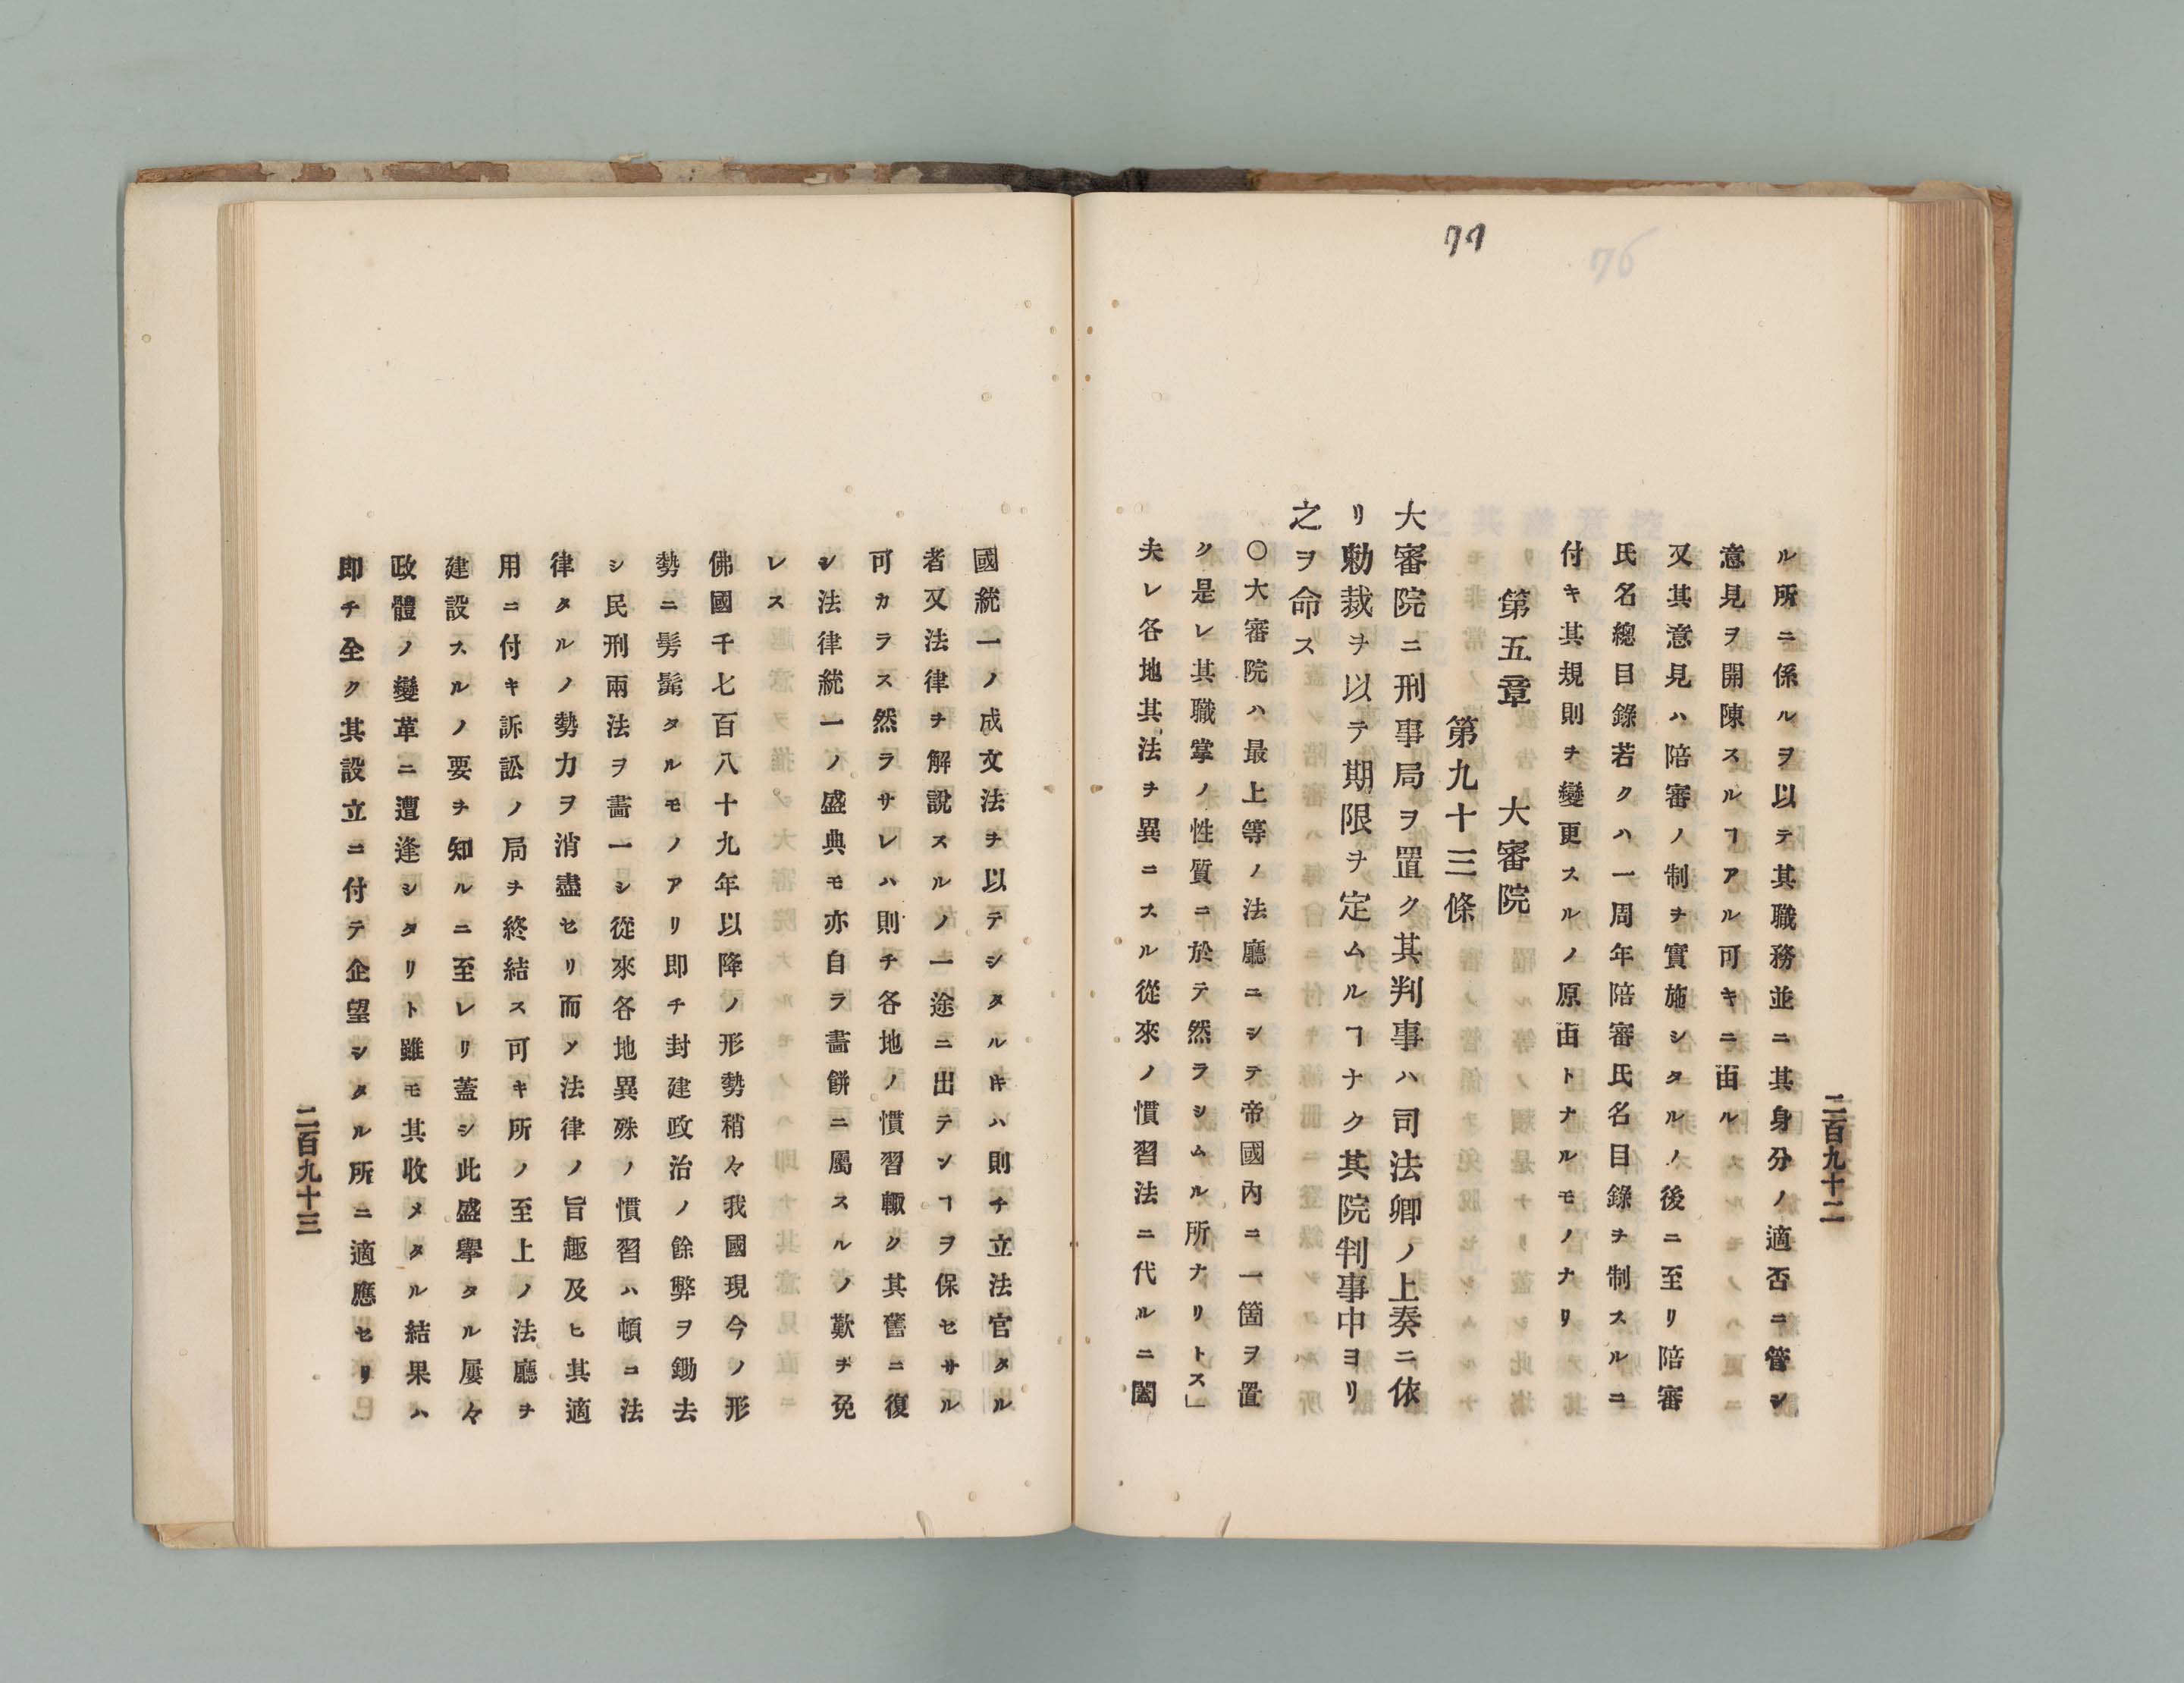 77
76
二百九十二
ル所ニ係ルヲ以テ其職務並ニ其身分ノ適否ニ管シ
意見ヲ開陳スルヿアル可キニ由ル
又其意見ハ陪審ノ制ヲ實施シタルノ後ニ至リ陪審
氏名總目錄若クハ一周年陪審氏名目錄ヲ制スルニ
付キ其規則ヲ變更スルノ原由トナルモノナリ
第五章 大審院
第九十三條
大審院ニ刑事局ヲ置ク其判事ハ司法卿ノ上奏ニ依
リ勅裁ヲ以テ期限ヲ定ムルヿナク其院判事中ヨリ
之ヲ命ス
〇大審院ハ最上等ノ法廳ニシテ帝國內ニ一箇ヲ置
ク是レ其職掌ノ性質ニ於テ然ラシムル所ナリトス」
夫レ各地其法ヲ異ニスル從來ノ慣習法ニ代ルニ闔
國統一ノ成文法ヲ以テシタルキハ則チ立法官タル
者又法律ヲ解說スルノ一途ニ出テンヿヲ保セサル
可カラス然ラサレハ則チ各地ノ慣習輙ク其舊ニ復
シ法律統一ノ盛典モ亦自ラ畵餠ニ屬スルノ歎ヲ免
レス
佛國千七百八十九年以降ノ形勢稍々我國現今ノ形
勢ニ髣髴タルモノアリ即チ封建政治ノ餘弊ヲ鋤去
シ民刑兩法ヲ畵一シ從來各地異殊ノ慣習ハ頓ニ法
律タルノ勢力ヲ消盡セリ而メ法律ノ旨趣及ヒ其適
用ニ付キ訴訟ノ局ヲ終結ス可キ所ノ至上ノ法廳ヲ
建設スルノ要ヲ知ルニ至レリ蓋シ此盛擧タル屢々
政體ノ變革ニ遭逢シタリト雖モ其收メタル結果ハ
即チ全ク其設立ニ付テ企望シタル所ニ適應セリ
二百九十三